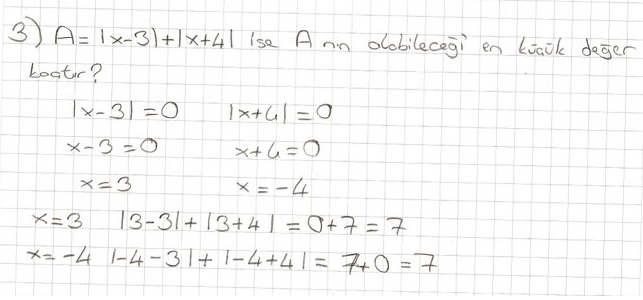 3) A = |x-3|+|x+4| ise A nın alabileceği en küçük değer
kaçtır?
|x-3| = 0 |x+4| = 0
x-3 = 0 x+4 = 0
x = 3 x = -4
x=3 |3-3|+|3+4| = 0+7 = 7
x=-4 |-4-3|+|-4+4| = 7+0 = 7